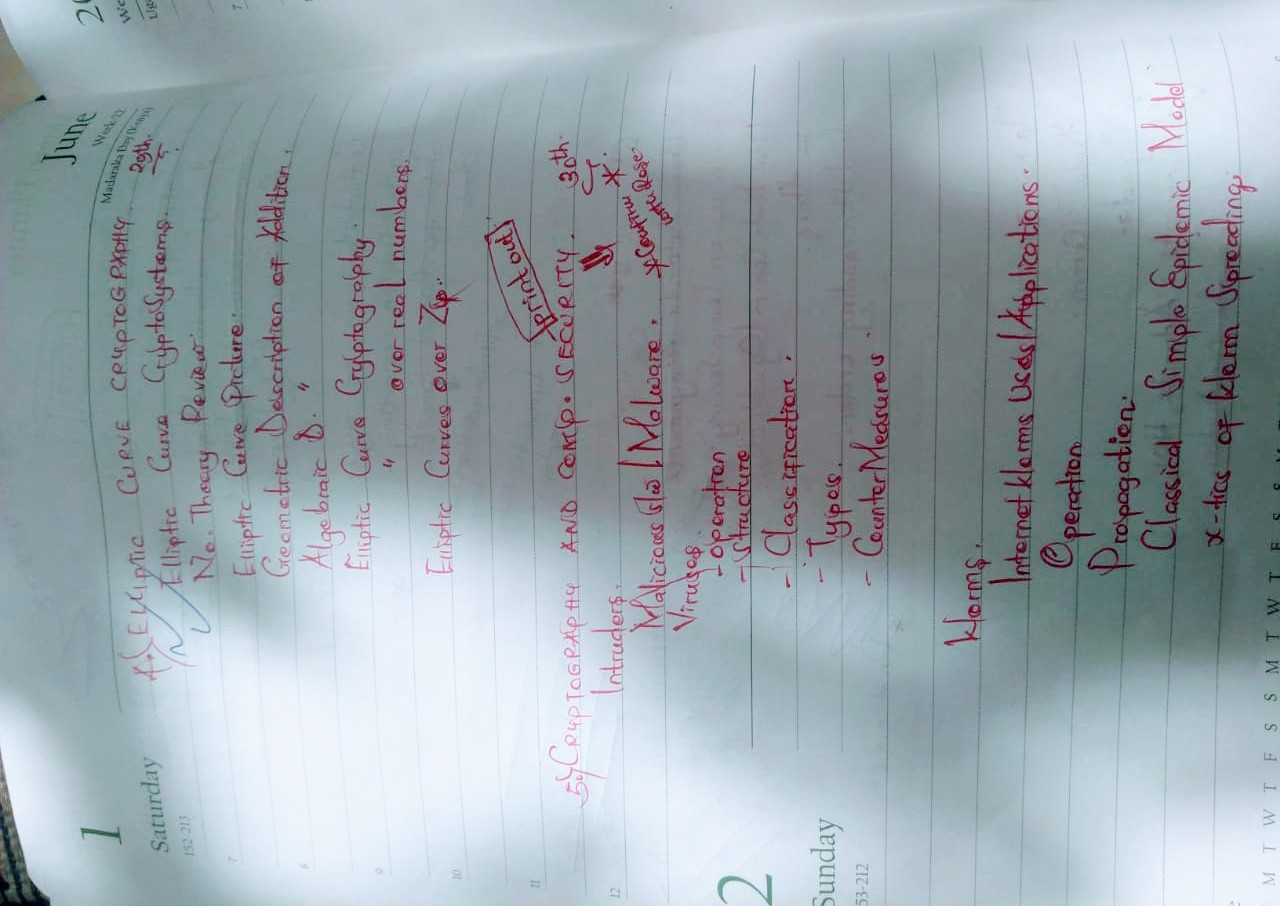 June
20
We
1
Saturday
152-213
Week 22
Madaraka Day (Kenya)
4.) Elliptic CURVE CRYPTOGRAPHY 29th
Elliptic Curve CryptoSystems.
No. Theory Review.
Elliptic Curve Picture.
Geometric Description of Addition.
Algebraic D. "
Elliptic Curve Cryptography.
" over real numbers.
Elliptic Curves over Zp.
Print out
5.) CRYPTOGRAPHY AND COMP. SECURITY. 30th
Intruders.
Malicious S/w / Malware. *Confirm with Rose
Viruses.
- Operation
- Structure
- Classification.
- Types.
- CounterMeasures.
7
8
9
10
11
12
2
Sunday
53-212
Worms.
Internet Worms Uses/Applications.
Operation
Propagation.
Classical Simple Epidemic Model
x-tics of Worm Spreading.
M T W T F S S M T W T F S S M